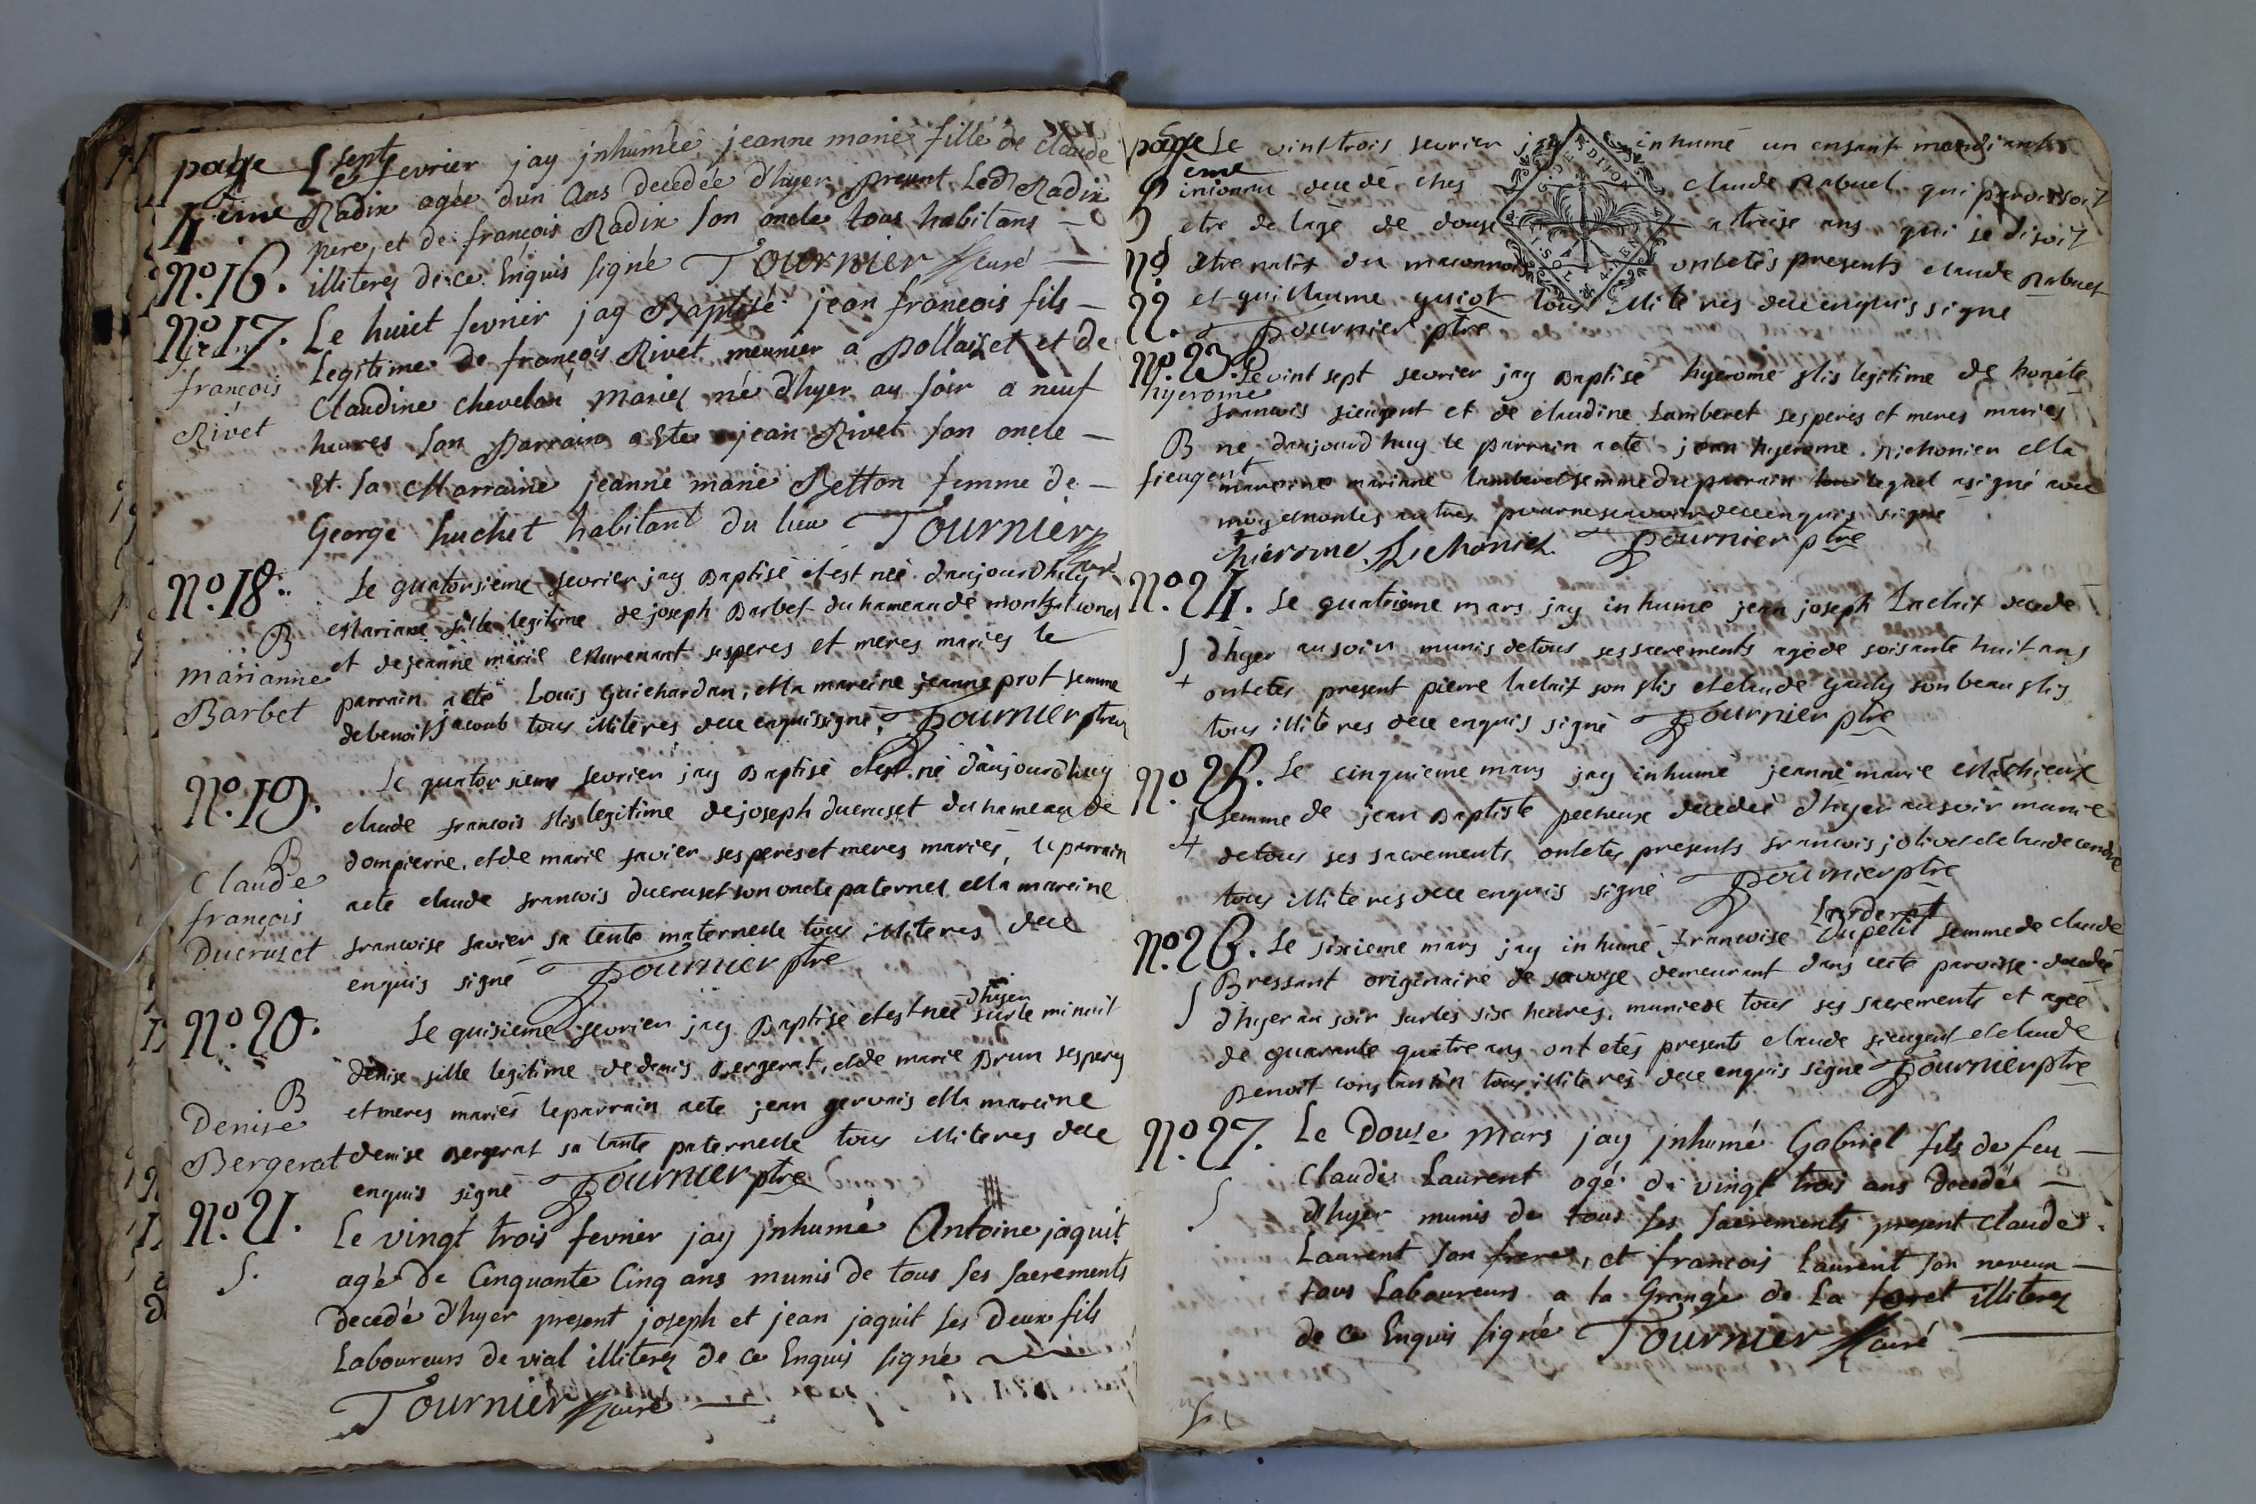 page 4eme
Le sept fevrier jay jnhumée jeanne marie fille de Claude
Radix agée dun Ans decedée d'hyer present Led Radix
pere, et de françois Radix son oncle tous habitans
No. 16.
illiterez de ce Enquis signé Tournier curé
No. 17.
françois
Rivet
Le huict fevrier jay Baptisé jean françois fils
Legitime de françois Rivet meunier a Pollaizet et de
Claudine chevelan Mariez né d'hyer au soir a neuf
heures son Parrain a Ete jean Rivet son oncle
Et sa Marraine jeanne marie Betton femme de
George huchet habitant du lieu Tournier curé
No. 18.
B
marianne
Barbet
Le quatorsieme fevrier jay Baptisé et est neé d'aujourdhuy
Mariane fille legitime de joseph Barbet du hameau de
et de jeanne marie ses peres et meres mariés le
parrain a eté Louis Guichardan, et la mareine jeanne prot femme
de benoit jacoub tous illiteres de ce enquis signé, Tournier ptre
No. 19.
B
Claude
françois
Ducruset
Le quatorsieme fevrier jay Baptisé et est né d'aujourdhuy
claude francois fils legitime de joseph ducruset du hameau de
dompierre, et de marie favier ses peres et meres mariés, le parrain
a eté claude francois ducruset son oncle paternel et la mareine
francoise favier sa tente maternelle tous illiteres de ce
enquis signé Tournier ptre
No. 20.
B
Denise
Bergerat
Le quisieme fevrier jay Baptisé et est neé d'hyer sur le minuit
denise fille legitime de denis Bergerat, et de marie Brun ses peres
et meres mariés le parrain a eté jean gervais et la mareine
denise Bergerat sa tante paternelle tous illiteres de ce
enquis signé Tournier ptre
No. 21.
S.
Le vingt trois fevrier jay jnhumé Antoine jaquit
agé de Cinquante Cinq ans munis de tous ses sacrements
decedé d'hyer present joseph et jean jaquit ses deux fils
Laboureurs de vial illiterez de ce Enquis signé
Tournier curé
page 5eme
Le vint trois fevrier jay inhumé un enfant mandiant
inconnu decedé chés claude Rabuel qui paroissoit
etre de lage de douse a treise ans qui se disoit
No 22.
etre natif du maconnois ont etés presents claude Rabuel
et guillaume guiot tous illiteres de ce enquis signé
Tournier ptre
No. 23.
hyerome
B
fieugent
Le vint sept fevrier jay Baptisé hyerome fils legitime de honéte
francois fieugent et de claudine Lamberet ses peres et meres mariés
né d'aujourdhuy le parrain a eté jean hyerome et la
mareine mariane lamberet femme du parrain lequel a signé avec
moy et non les autres pour ne scavoir de ce enquis signé
hierome Tournier ptre
No. 24.
S
+
Le quatrieme mars jay inhumé jean joseph Laclait decedé
d'hyer au soir munis de tous ses sacrements agé de soisante huit ans
ont etés present pierre laclait son fils et claude gauly son beau fils
tous illiteres de ce enquis signé Tournier ptre
No. 25.
S
+
Le cinquieme mars jay inhumé jeanne marie
femme de jean Baptiste pecheux decedeé d'hyer au soir munie
de tous ses sacrements, ont etés presents francois jolivet et claude
tous illiteres de ce enquis signé Tournier ptre
No. 26.
S
Le sixieme mars jay inhumé francoise dupetit femme de claude
Bressant originaire de savoye demeurant dans cette paroisse decedée
d'hyer au soir sur les six heures, munie de tous ses sacrements et ageé
de quarante quatre ans ont etés presents claude fieugent et claude
Benoit constantin tous illiteres de ce enquis signé Tournier ptre
No. 27.
S
Le Douze Mars jay jnhumé Gabriel fils de feu
Claude Laurent agé de vingt trois ans decedé
d'hyer munis de tous ses sacrements present Claude
Laurent son frere, et francois Laurent son neveux
tous Laboureurs a la Grange de La foret illiterez
de ce Enquis signé Tournier curé